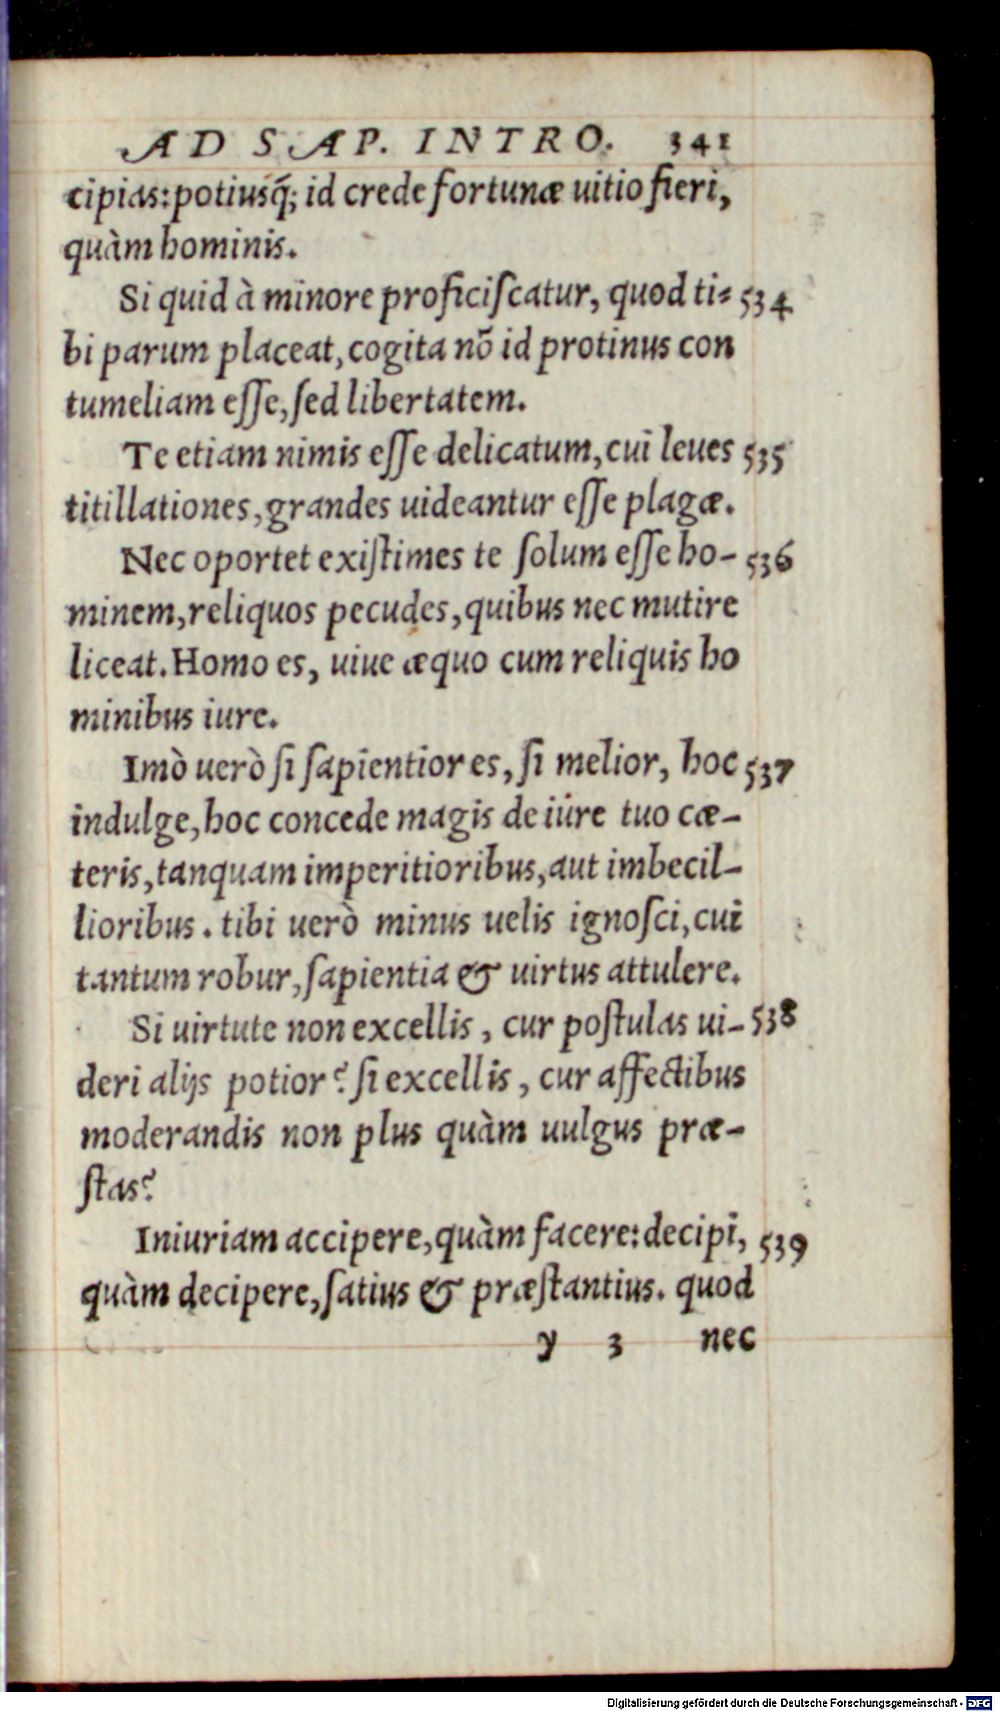 AD SAP. INTRO. 341
cipias: potiusq́; id crede fortunæ uitio fieri,
quàm hominis.
Si quid à minore proficiſcatur, quod ti- 534
bi parum placeat, cogita nõ id protinus con
tumeliam eſſe, ſed libertatem.
Te etiam nimis eſſe delicatum, cui leues 535
titillationes, grandes uideantur eſſe plagæ.
Nec oportet exiſtimes te ſolum eſſe ho- 536
minem, reliquos pecudes, quibus nec mutire
liceat. Homo es, uiue æquo cum reliquis ho
minibus iure.
Imò uerò ſi ſapientior es, ſi melior, hoc 537
indulge, hoc concede magis de iure tuo cæ-
teris, tanquam imperitioribus, aut imbecil-
lioribus. tibi uerò minus uelis ignoſci, cui
tantum robur, ſapientia & uirtus attulere.
Si uirtute non excellis, cur poſtulas ui- 538
deri alijs potior? ſi excellis, cur affectibus
moderandis non plus quàm uulgus præ-
ſtas?
Iniuriam accipere, quàm facere: decipi, 539
quàm decipere, ſatius & præſtantius. quod
y 3 nec
Digitalisierung gefördert durch die Deutsche Forschungsgemeinschaft - DFG